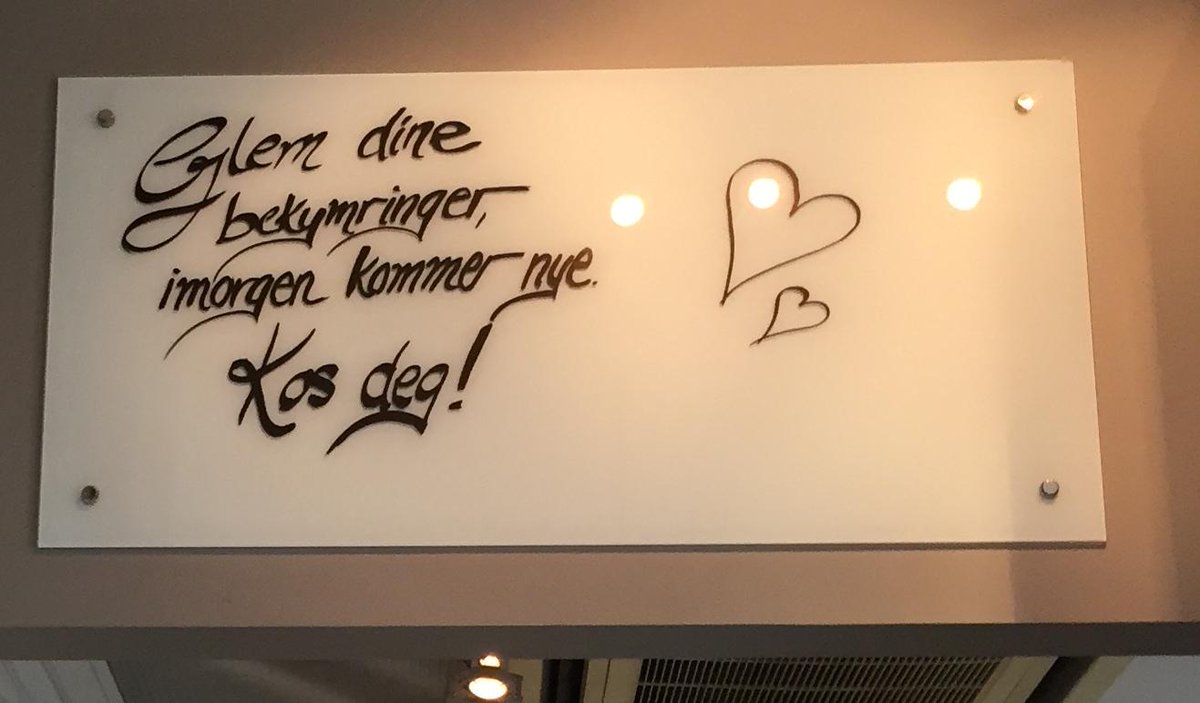 Glem dine
bekymringer,
imorgen kommer nye.
Kos deg!